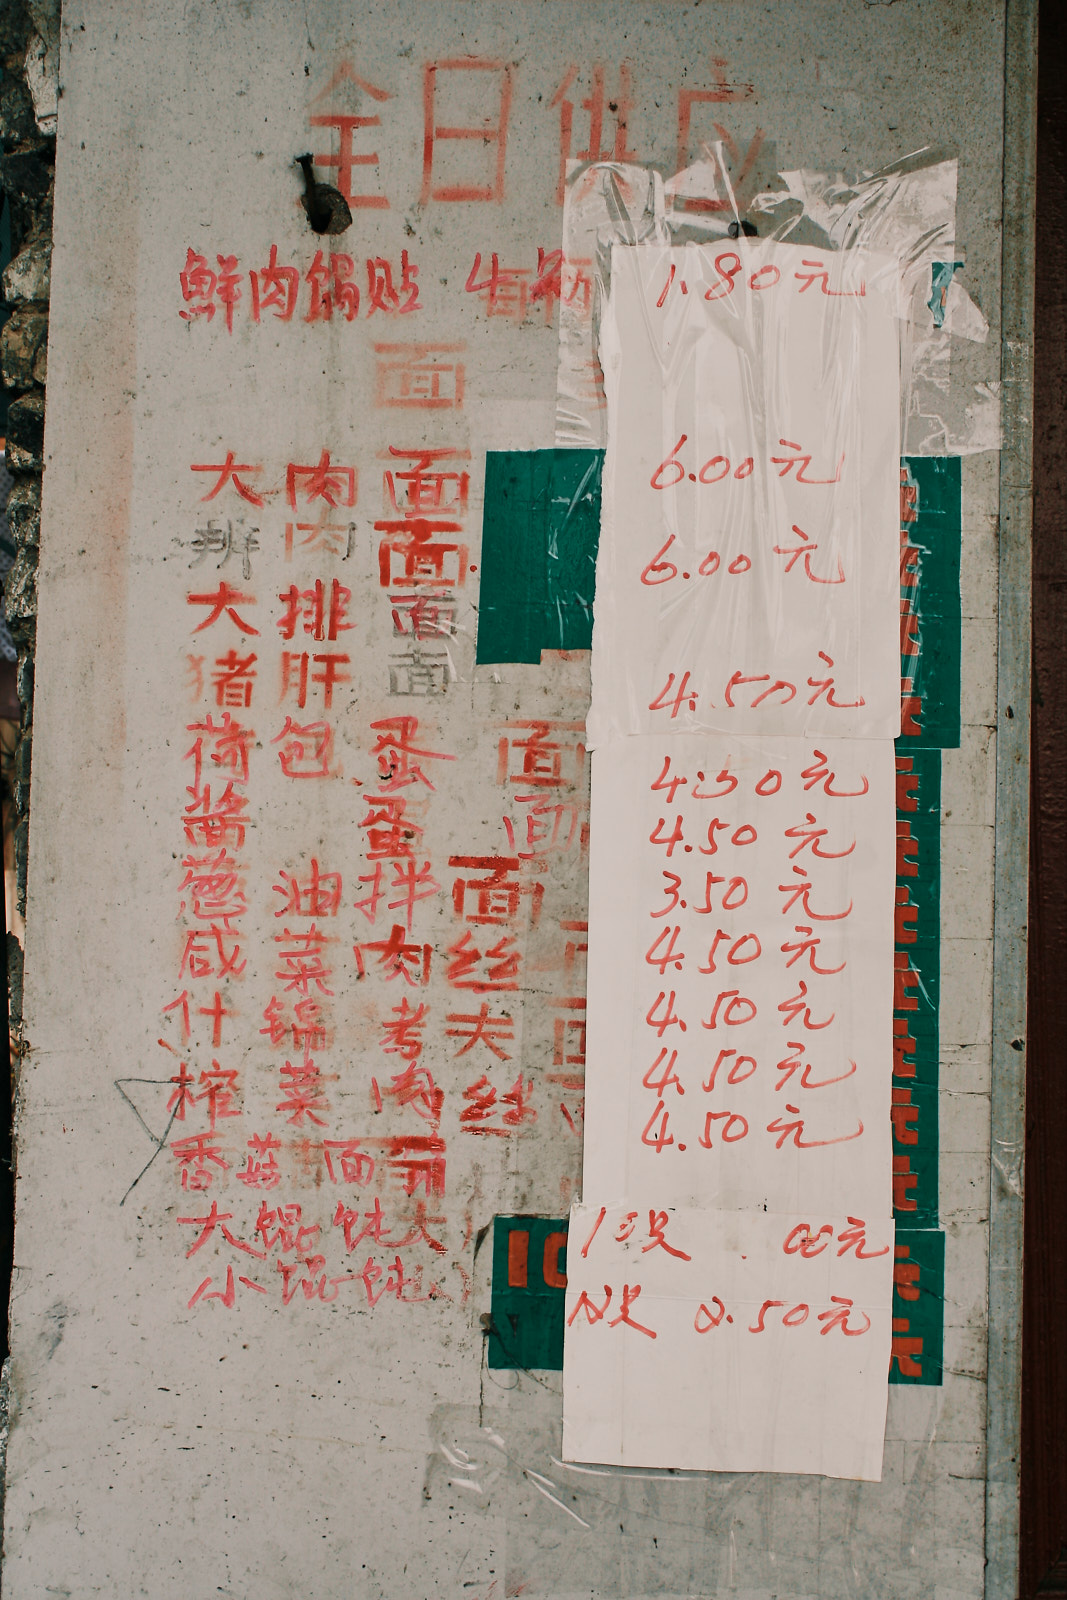 全日供应
鲜肉锅贴 1.80元
面
大肉面 6.00元
辨肉面
大排面 6.00元
猪肝面 4.50元
荷包蛋面 4.50元
酱蛋面 4.50元
葱油拌面 3.50元
咸菜肉丝面 4.50元
什锦考夫 4.50元
榨菜肉丝 4.50元
香菇面 4.50元
大馄饨 00元
小馄饨 2.50元
10